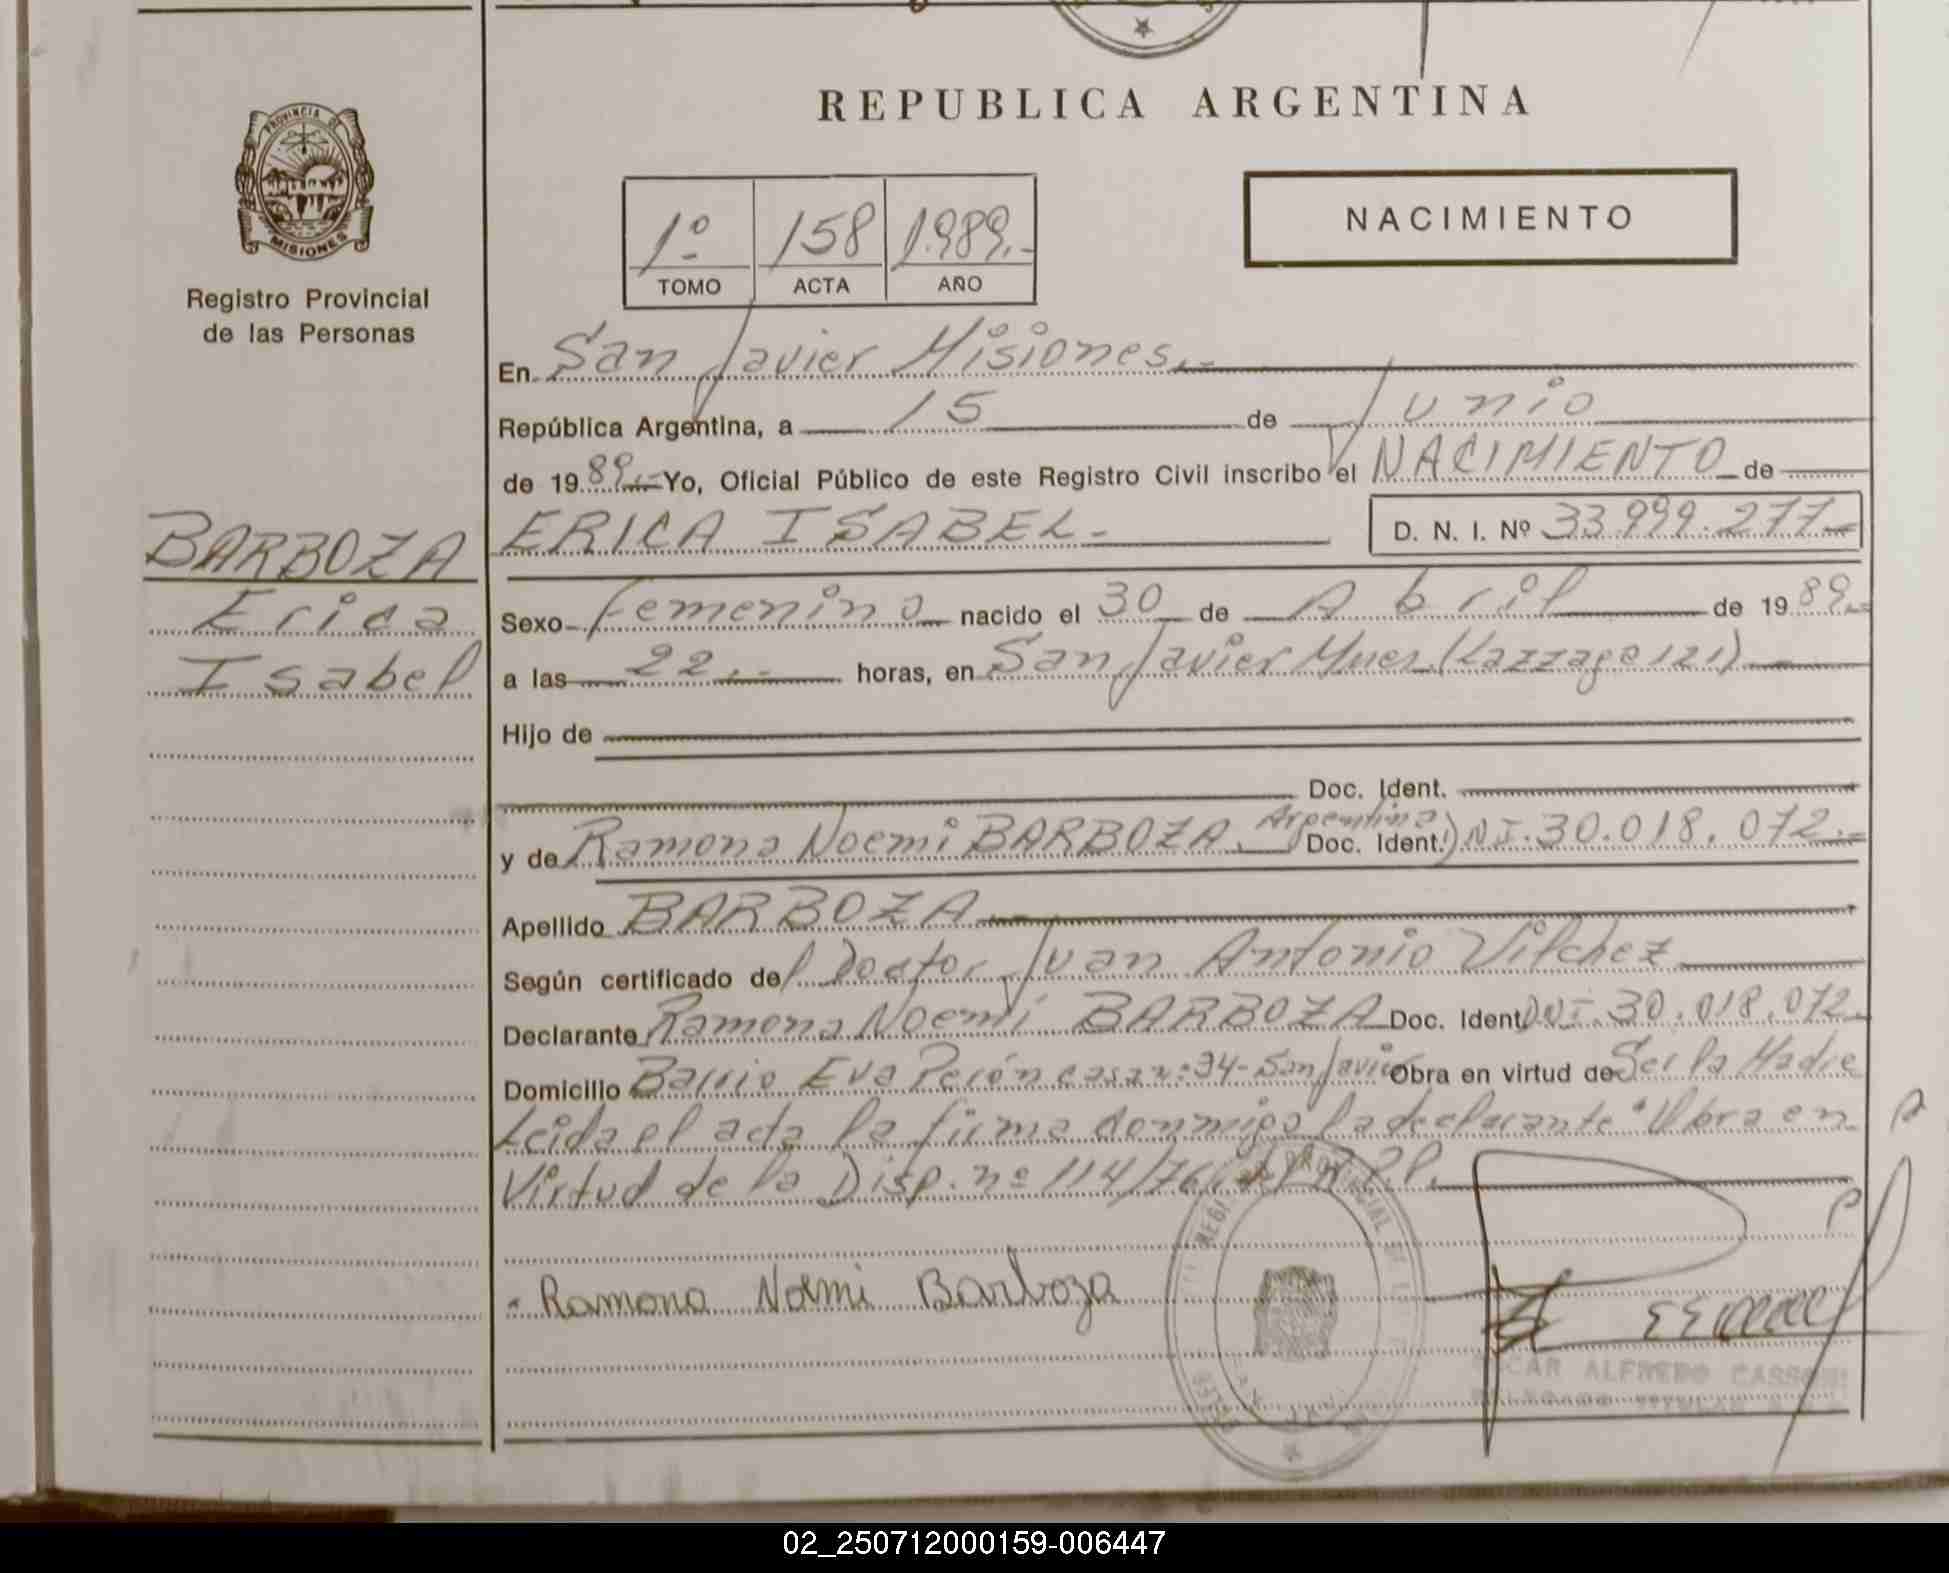 REPUBLICA ARGENTINA
PROVINCIA DE
MISIONES
Registro Provincial
de las Personas
1º 158 1.989.-
TOMO ACTA AÑO
NACIMIENTO
En San Javier Misiones.-
República Argentina, a 15 de Junio
de 1989.- Yo, Oficial Público de este Registro Civil inscribo el NACIMIENTO de
BARBOZA
Erica
Isabel
ERICA ISABEL.- D. N. I. Nº 33.999.277-
Sexo femenino nacido el 30 de Abril de 1989.-
a las 22.- horas, en San Javier Mnes. (Lazzaga 121)
Hijo de
Doc. Ident.
y de Ramona Noemi BARBOZA. Argentina Doc. Ident. DNI. 30.018.072.-
Apellido BARBOZA.-
Según certificado del Doctor Juan Antonio Vilchez
Declarante Ramona Noemi BARBOZA Doc. Ident. DNI. 30.018.072.
Domicilio Barrio Eva Perón casa nº 34- San Javier Obra en virtud de Ser la Madre
Leida el acta la firma conmigo la declarante "Obra en
Virtud de la Disp. nº 114/76 del R.P.P.
Ramona Noemi Barboza
REGISTRO PROVINCIAL DE
OSCAR ALFREDO CASSONI
DELEGADO TITULAR
02_250712000159-006447